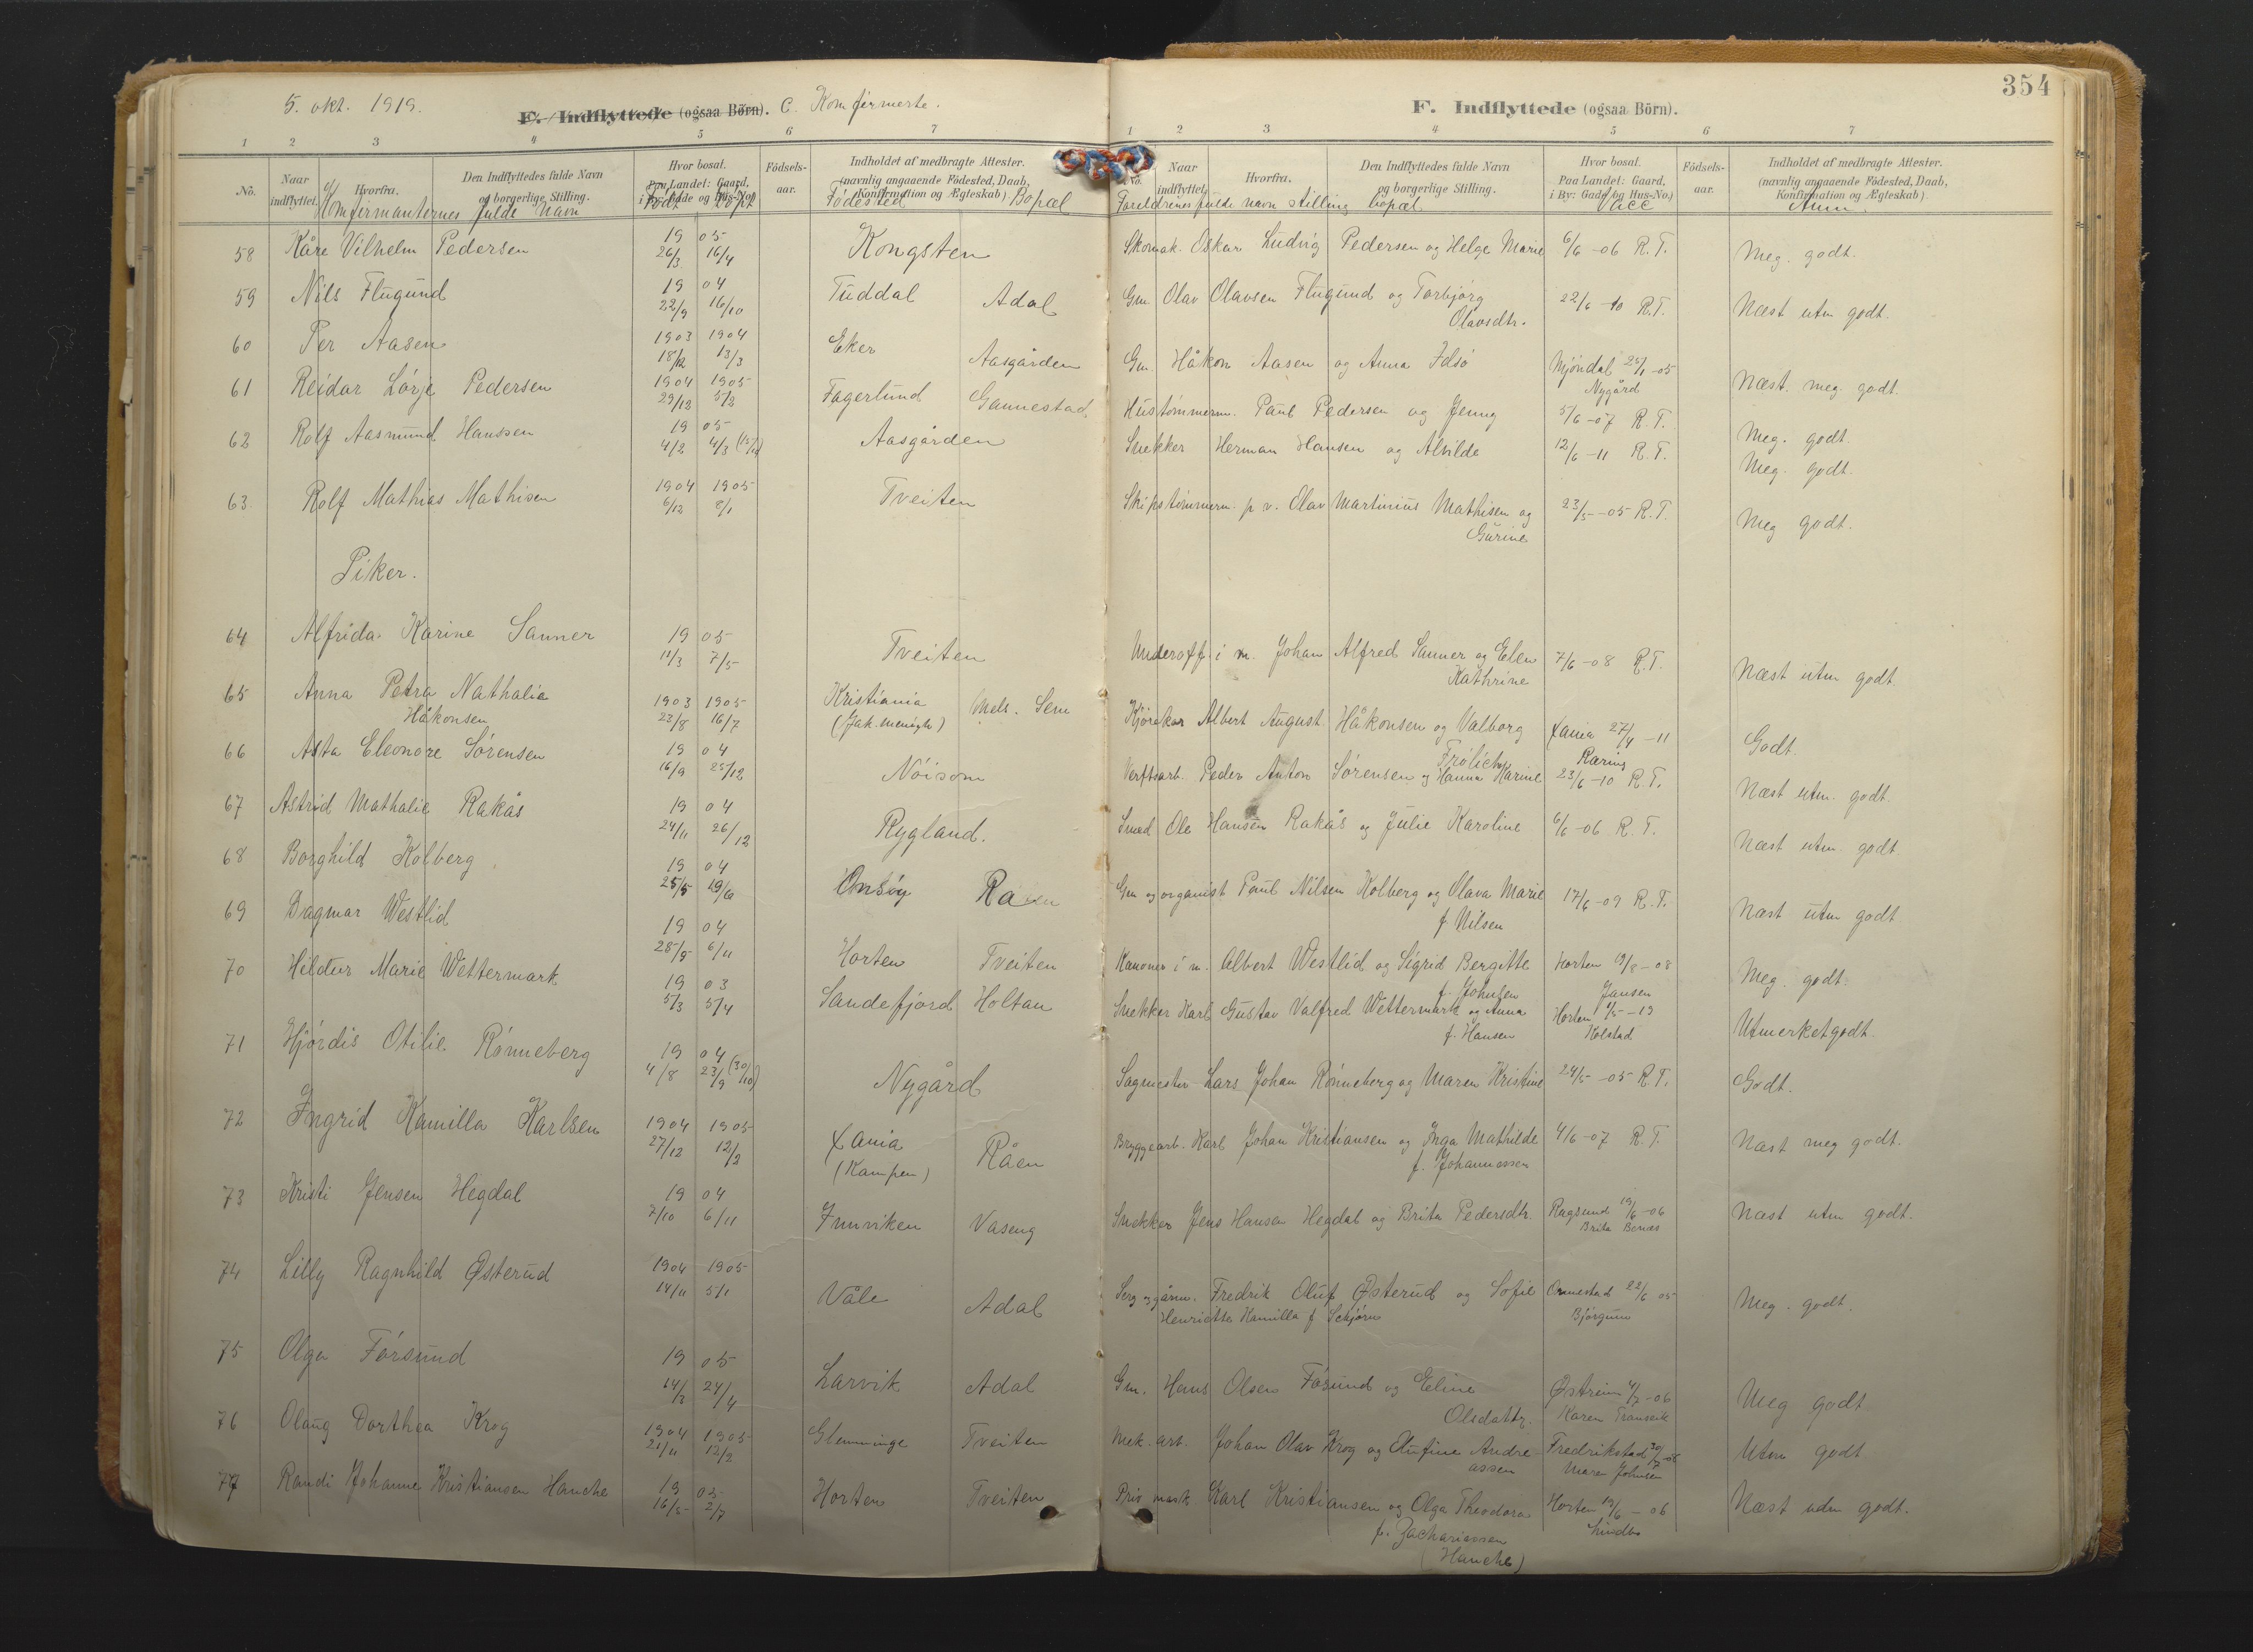 354
5. okt. 1919.
F. Indflyttede (ogsaa Børn). C. Konfirmerte.
F. Indflyttede (ogsaa Börn).
1 2 3 4 5 6 7
1 2 3 4 5 6 7
No. Naar indflyttet. Hvorfra. Den Indflyttedes fulde Navn og borgerlige Stilling. Hvor bosat. Paa Landet: Gaard, i By: Gade og Hus-No.) Födsels-aar. Indholdet af medbragte Attester. (navnlig angaaende Födested, Daab, Konfirmation og Ægteskab)
No. Naar indflyttet. Hvorfra. Den Indflyttedes fulde Navn og borgerlige Stilling. Hvor bosat. Paa Landet: Gaard, i By: Gade og Hus-No.) Födsels-aar. Indholdet af medbragte Attester. (navnlig angaaende Födested, Daab, Konfirmation og Ægteskab)
Konfirmanternes fulde navn Födt Döpt Födested Bopæl Foreldrenes fulde navn stilling bopæl Vacc Anm.
58 Kåre Vilhelm Pedersen 1905 26/3 16/4 Kongsten Skomak. Oskar Ludvig Pedersen og Helga Marie 6/6 -06 R.T. Meg. godt.
59 Nils Flugund 1904 22/9 16/10 Tuddal Adal Gm. Olav Olavsen Flugund og Torbjørg
Olavsdtr. 22/6 -10 R.T. Næst utm godt.
60 Per Aasen 1903 1904 18/12 13/3 Eker Aasgården Gm. Håkon Aasen og Anna Idsø Mjöndal 25/1 -05
Nygård Næst. meg. godt.
61 Reidar Lörje Pedersen 1904 1905 29/12 5/2 Fagerlund Gannestad. Hustömmerm. Paul Pedersen og Jenny 5/6 -07 R.T. Meg. godt.
62 Rolf Aasmund Hanssen 1905 4/2 4/3 Aasgården Snekker Herman Hansen og Alvilde 12/6 -11 R.T. Meg. godt.
63. Rolf Mathias Mathisen 1904 1905 6/12 8/1 Tveiten Skipstömmerm. p. v. Olav Martinius Mathisen og
Gurine 23/5 -05 R.T. Meg godt.
Piker.
64 Alfrida Karine Sanner 1905 11/3 7/5 Tveiten Underoff. i m. Johan Alfred Sanner og Elen
Kathrine 7/6 -08 R.T. Næst utm godt.
65 Anna Petra Nathalia
Håkonsen 1903 1905 23/8 16/7 Kristiania
(Jak. menigh.) Mels. Sem Kjörekar Albert August Håkonsen og Valborg
Frölich Xania 27/4 -11
Raring Godt.
66 Asta Eleonore Sörensen 1904 16/9 25/12 Nöisom Verftsarb. Peder Anton Sörensen og Hanna Karine 23/6 -10 R.T. Næst utm. godt.
67 Astrid Mathalie Rakås 1904 24/11 26/12 Rygland. Smed Ole Hansen Rakås og Julie Karoline 6/6 -06 R.T. Næst utm. godt.
68 Borghild Kolberg 1904 25/5 19/6 Onsöy Raen Gm og organist Paul Nilsen Kolberg og Olava Marie
f. Nilsen 17/6 -09 R.T. Næst utm godt
69 Dagmar Westlid 1904 28/9 6/11 Horten Tveiten Kanoner i m. Albert Westlid og Sigrid Bergitte
f. Johnsen Horten 19/8 -08
Jansen Meg. godt.
70 Hildur Marie Wettermark 1903 5/3 5/4 Sandefjord Holtan Snekker Karl Gustav Valfred Wettermark og Anna
f. Hansen Horten 1/5 -19
Kolstad Utmerket godt
71 Hjördis Otilie Rönneberg 1904 4/8 23/9 (30/10) Nygård Sagmester Lars Johan Rönneberg og Maren Kristine 24/5 -05 R.T. Godt.
72 Ingrid Kamilla Karlsen 1904 1905 27/12 12/2 Xania
(Kampen) Råen Bryggearb. Karl Johan Kristiansen og Inga Mathilde
f. Johannessen 4/6 -07 R.T. Næst meg godt.
73 Kristi Jensen Hegdal 1904 7/10 6/11 Innviken Vaseng Snekker Jens Hansen Hegdal og Brita Pedersdtr. Ragsund 19/6 -06
Brita Benæs Næst utm godt.
74 Lilly Ragnhild Østerud 1904 1905 14/11 5/1 Våle Adal Serg og gårm. Fredrik Oluf Østerud og Sofie
Henriette Kamilla f Schjörn 22/6 05
Björgum Meg. godt.
75 Olga Försund 1905 14/3 24/4 Larvik Adal Gm. Hans Olsen Försund og Eline
Olsdattr. Østreim 4/7 -06
Karen Meg godt
76 Olaug Dorthea Krog 1904 1905 21/11 12/2 Glemminge Tveiten Mek. arb. Johan Olav Krog og Olufine Andre
assen Fredrikstad
Maren Johnsen Utm godt
77 Randi Johanne Kristiansen Hanche 1905 16/5 2/7 Horten Tveiten Priv. mask Karl Kristiansen og Olga Theodora
f. Zachariassen
(Hanche) Horten 19/6 -06
Lindbo Næst utm godt.